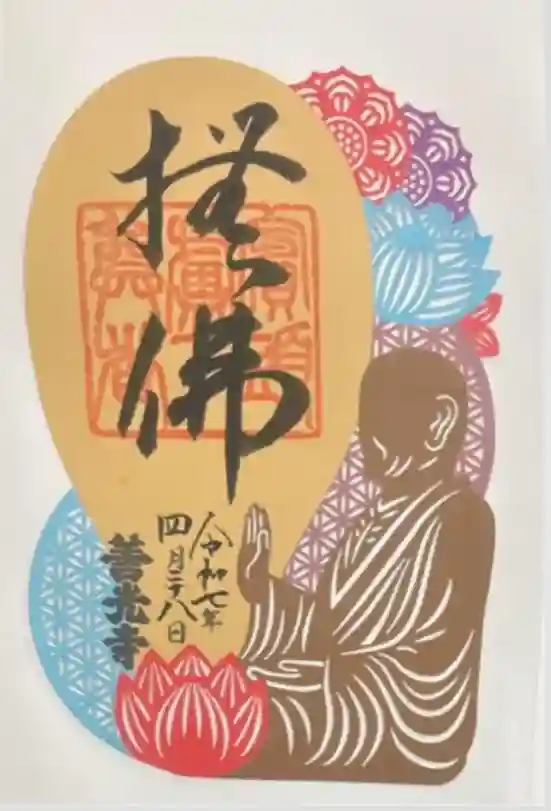 撫佛
令和七年
四月二十八日
善光寺